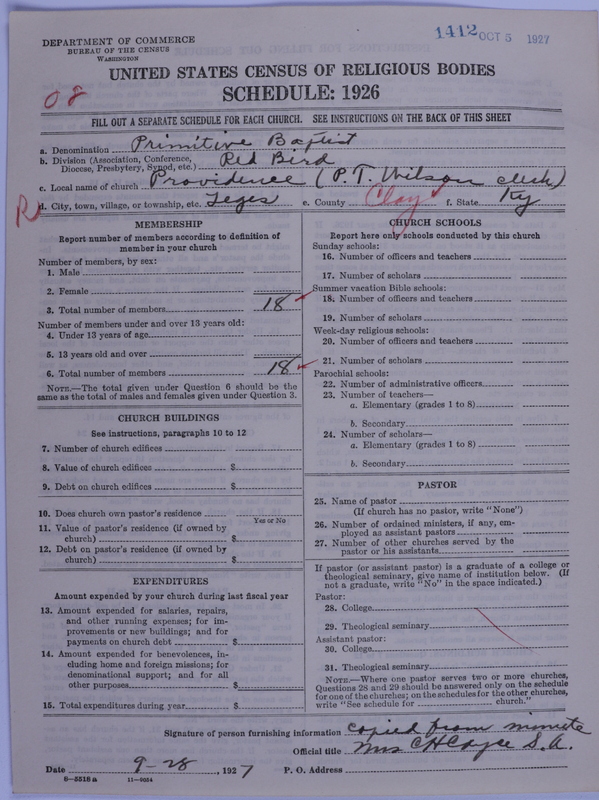 1412 OCT 5 1927
DEPARTMENT OF COMMERCE
BUREAU OF THE CENSUS
WASHINGTON
UNITED STATES CENSUS OF RELIGIOUS BODIES
SCHEDULE: 1926
08
FILL OUT A SEPARATE SCHEDULE FOR EACH CHURCH. SEE INSTRUCTIONS ON THE BACK OF THIS SHEET
a. Denomination Primitive Baptist
b. Division (Association, Conference, Diocese, Presbytery, Synod, etc.) Red Bird
c. Local name of church Providence (P. T. Wilson clerk)
R
d. City, town, village, or township, etc. Teges e. County Clay f. State Ky
MEMBERSHIP
Report number of members according to definition of
member in your church
Number of members, by sex:
1. Male
2. Female
3. Total number of members 18
Number of members under and over 13 years old:
4. Under 13 years of age
5. 13 years old and over
6. Total number of members 18
NOTE.—The total given under Question 6 should be the
same as the total of males and females given under Question 3.
CHURCH BUILDINGS
See instructions, paragraphs 10 to 12
7. Number of church edifices
8. Value of church edifices $
9. Debt on church edifices $
10. Does church own pastor's residence
Yes or No
11. Value of pastor's residence (if owned by
church) $
12. Debt on pastor's residence (if owned by
church) $
EXPENDITURES
Amount expended by your church during last fiscal year
13. Amount expended for salaries, repairs,
and other running expenses; for im-
provements or new buildings; and for
payments on church debt $
14. Amount expended for benevolences, in-
cluding home and foreign missions; for
denominational support; and for all
other purposes $
15. Total expenditures during year $
CHURCH SCHOOLS
Report here only schools conducted by this church
Sunday schools:
16. Number of officers and teachers
17. Number of scholars
Summer vacation Bible schools:
18. Number of officers and teachers
19. Number of scholars
Week-day religious schools:
20. Number of officers and teachers
21. Number of scholars
Parochial schools:
22. Number of administrative officers
23. Number of teachers—
a. Elementary (grades 1 to 8)
b. Secondary
24. Number of scholars—
a. Elementary (grades 1 to 8)
b. Secondary
PASTOR
25. Name of pastor
(If church has no pastor, write "None")
26. Number of ordained ministers, if any, em-
ployed as assistant pastors
27. Number of other churches served by the
pastor or his assistants
If pastor (or assistant pastor) is a graduate of a college or
theological seminary, give name of institution below. (If
not a graduate, write "No" in the space indicated.)
Pastor:
28. College
29. Theological seminary
Assistant pastor:
30. College
31. Theological seminary
NOTE.—Where one pastor serves two or more churches,
Questions 28 and 29 should be answered only on the schedule
for one of the churches; on the schedules for the other churches,
write "See schedule for church."
Signature of person furnishing information copied from minute
Official title Mrs C H Cayce S. A.
Date 9-28, 1927 P. O. Address
8—5518 a 11—9054